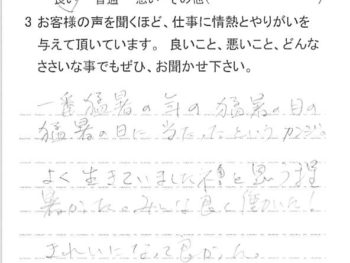 良い 普通 悪い その他(
3 お客様の声を聞くほど、仕事に情熱とやりがいを
与えて頂いています。 良いこと、悪いこと、どんな
ささいな事でもぜひ、お聞かせ下さい。
一番猛暑の年の猛暑の日の
猛暑の日に当たったというカンジ。
よく生きていました と思う程
暑かった。みんな良く働いた!
きれいになって良かった。